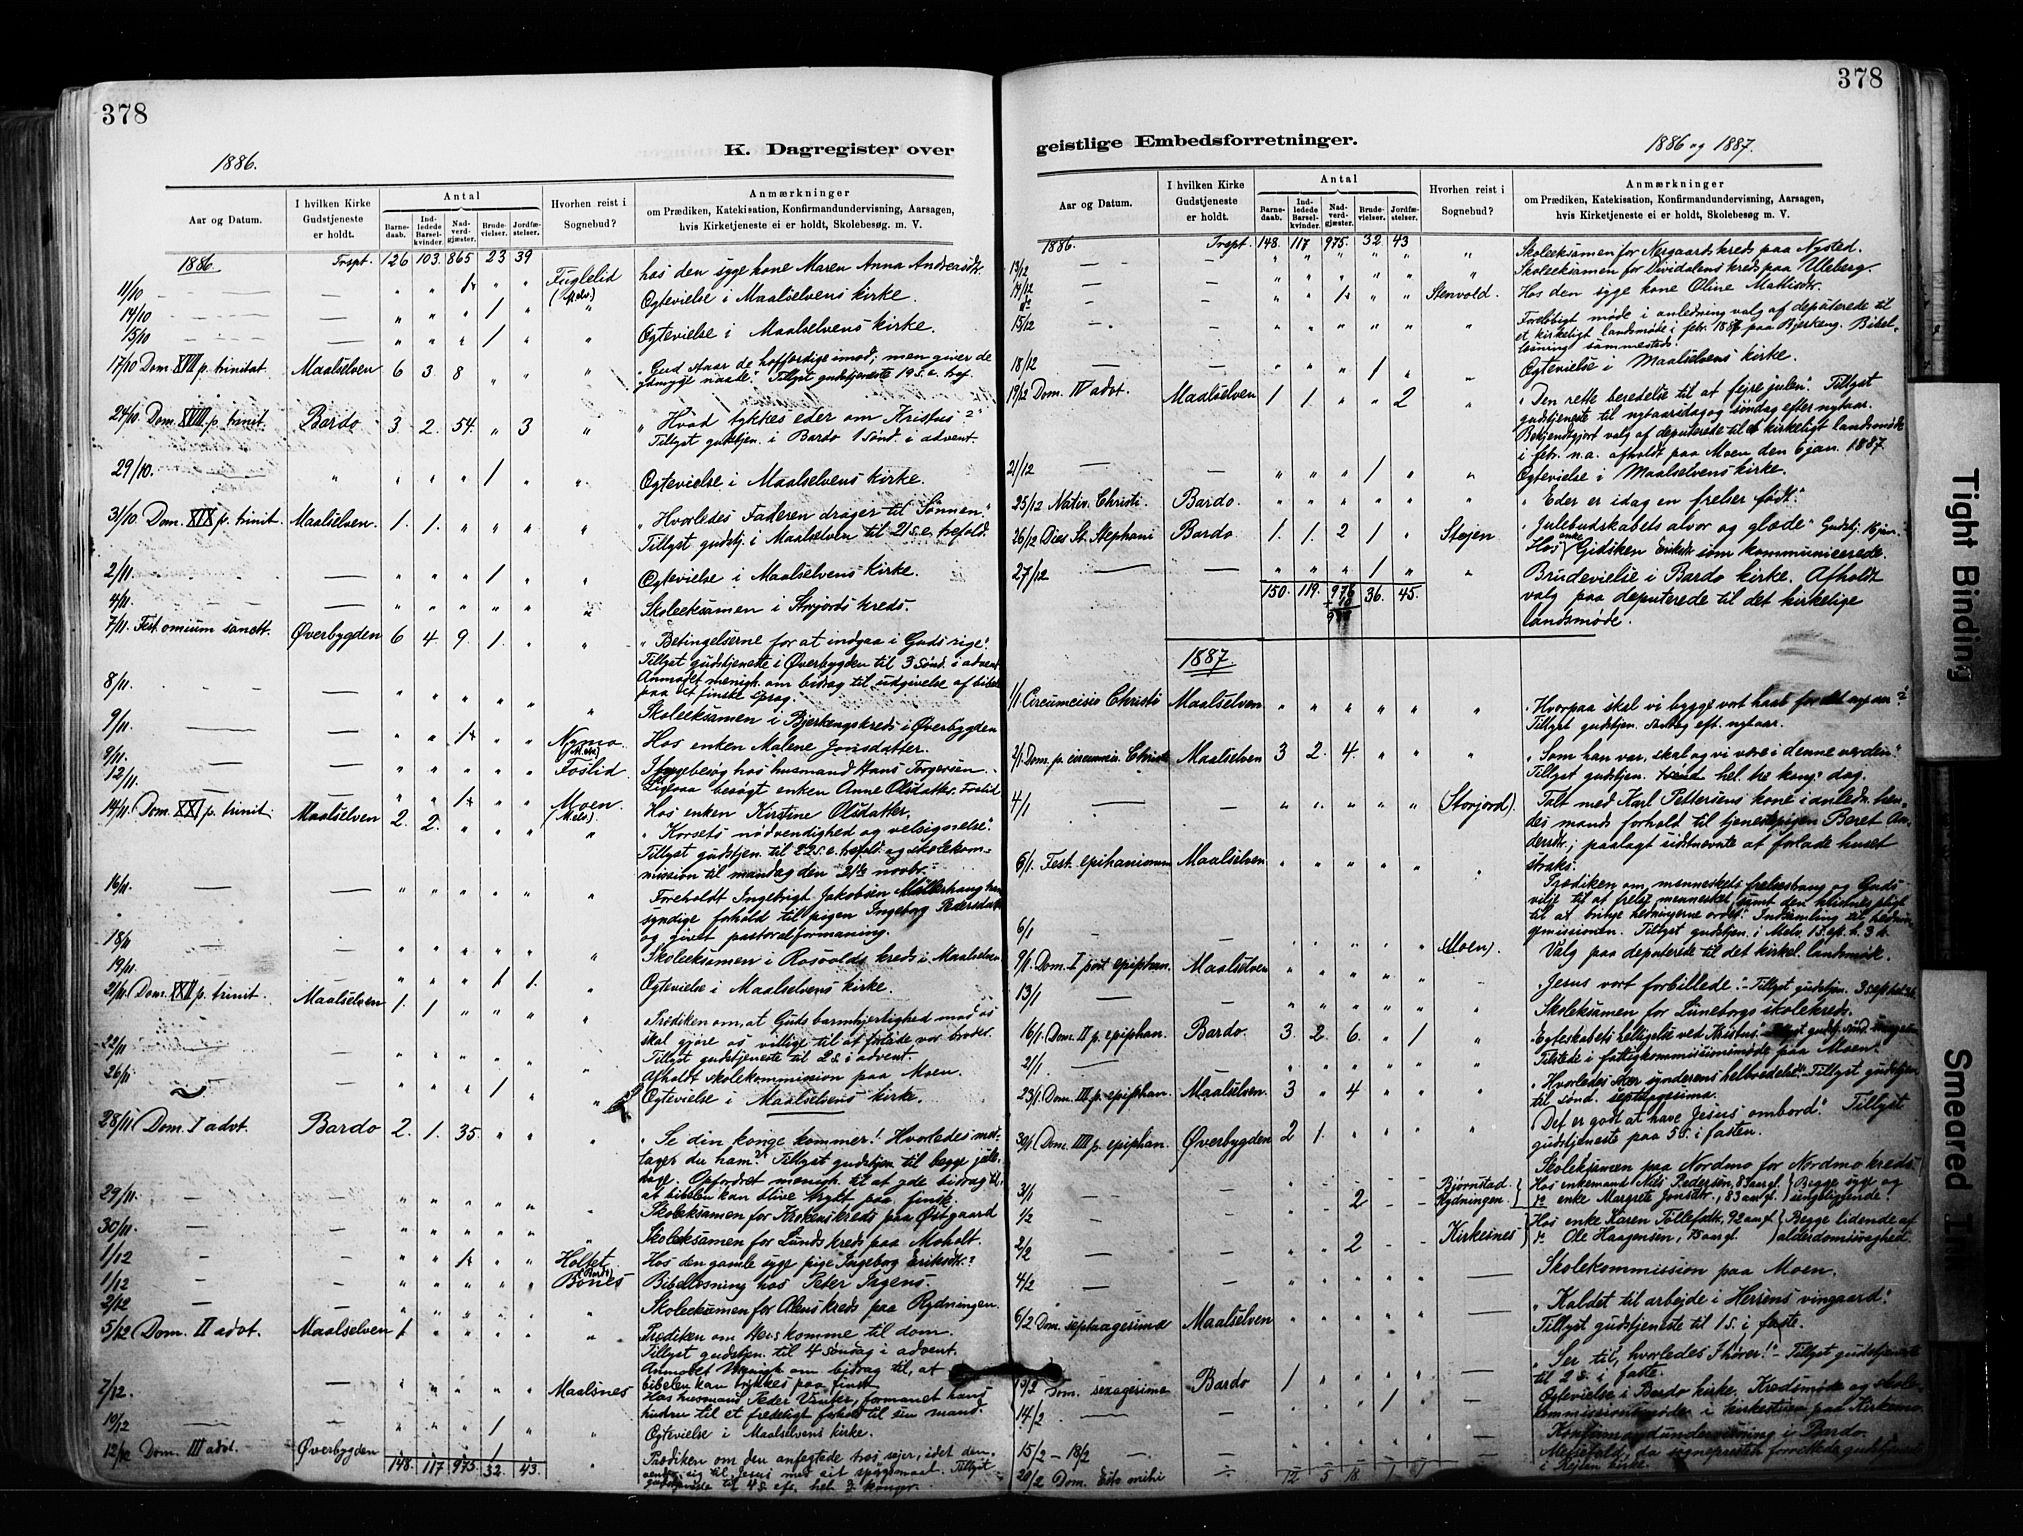 378
K. Dagregister over
1886.
Aar og Datum.
I hvilken Kirke Gudstjeneste er holdt.
Antal
Barne-daab.
Ind-ledede Barsel-kvinder.
Nad-verd-gjæster.
Brude-vielser.
Jordfæ-stelser.
Hvorhen reist i Sognebud?
Anmærkninger
om Prædiken, Katekisation, Konfirmandundervisning, Aarsagen,
hvis Kirketjeneste ei er holdt, Skolebesøg. m. V.
1886. Trspt. 126 103. 865 23 39
11/10 — — " " 1 " " Fuglelid (Mols.) hos den syge kone Maren Anna Andreasdtr.
14/10 — — " " " 1 " " Ogtevielse i Maalselvens kirke.
15/10 — — " " " 1 " " Ogtevielse i Maalselvens kirke.
17/10 Dom. XVII p. trinitat. Maalselven 6 3 8 " " " "Gud staar de hoffærdige imod; men giver de
ydmyge naade." Tillyst gudstjeneste 19 s. e. tref.
24/10 Dom. XVIII p. trinit. Bardo 3 2. 54. " 3 " "Hvad tykkes eder om Kristus?"
Tillyst gudstjen. i Bardo 1 sønd. i advent.
29/10. " " " " 1 " " Ogtevielse i Maalselvens kirke.
31/10. Dom. XIX p. trinit. Maalselven. 1. 1. " " " " "Hvorledes Faderen drager til Sønnen."
Tillyst gudstj. i Maalselven til 21 s. e. trefold.
2/11. — — " " " 1 " " Ogtevielse i Maalselvens kirke.
4/11. — — " " " " " " Skoleeksamen i Storjords kreds.
7/11. Fest. omium sanctt. Øverbygden 6 4 9. 1. " " "Betingelserne for at indgaa i Guds rige."
Tillyst gudstjeneste i Øverbygden til 3 sønd. i advent.
Anmodet menigh. om bidrag til udgivelse af bibelen
paa et finske sprog.
8/11. " " " " " " Skoleeksamen i Bjerkengskreds i Øverbygden
9/11. — — " " 1 " " Nymo (Mols) Hos enken Malene Jonsdatter.
9/11. " " " " " Foslid Sygebesøg hos husmand Hans Torgersen.
12/11. " " 1 " " Moen (Mols). Hos enken Kirstine Olsdatter.
14/11. Dom. XXI p. trinit. Maalselven 2. 2. " " " " "Korsets nødvendighed og velsignelse."
Tillyst gudstjen. til 22 s. e. trefold. og skolekom-
mission til mandag den 21de novbr.
16/11. — — " " " " " " Foreholdt Ingebrigt Jakobsen
syndige forhold til pigen Ingeborg Pedersdatter
og givet pastoralformaning.
18/11 — — " " " " " " Skoleeksamen i Rosvolds kreds i Maalselven
19/11. — — " " " 1 1. " Ogtevielse i Maalselvens kirke.
21/11. Dom. XXII p. trinit. Maalselven 1. 1 " " " " Prædiken om, at Guds barmhjertighed mod os
skal gjøre os villige til at forlade vor broder.
Tillyst gudstjeneste til 2 s. i advent.
22/11 — — " " " " " " Afholdt skolekommission paa Moen.
26/11 — " " " 1 " " Ogtevielse i Maalselvens kirke.
28/11 Dom. I advt. Bardo 2. 1. 35. " " " "Se din konge kommer! Hvorledes mod-
tager du ham?" Tillyst gudstjen. til begge jule-
dage. Opfordret menigh. til at yde bidrag til,
at bibelen kan blive trykt paa finsk.
29/11. — — " " " " " " Skoleeksamen for Krokens kreds paa Østgaard
30/11. — — " " " " " " Skoleeksamen for Lunds kreds paa Moholt.
1/12 — — " " 1 " " Holtet (Bardo) Hos den gamle syge pige Ingeborg Eriksdtr.
1/12 — — " " " " " Bones Bibellæsning hos Peter Ingens.
2/12 — — " " " " " " Skoleeksamen for Alens kreds paa Rydningen.
5/12 Dom. II advt. Maalselven 1 " " " " " Prædiken om komme til dom.
Tillyst gudstjen. til 4 søndag i advent.
Anmodet menigh. om bidrag til, at
bibelen kan trykkes paa finsk
7/12. — — " " " " " Maalsnes Hos husmand Peder formanet hans
hustru til et fredeligt forhold til sin mand.
10/12 — — " " " 1 " " Ogtevielse i Maalselvens kirke.
12/12 Dom. III advt. Øverbygden 148. 117 975 32. 43. " Prædiken om den anfegtede tros sejer, idet den
vender sig til Jesus med sit spørgsmaal. Tillyst
gudstjeneste til 4 s. efr. hel. 3 konger.
378
geistlige Embedsforretninger.
1886 og 1887.
Aar og Datum.
I hvilken Kirke Gudstjeneste er holdt.
Antal
Barne-daab.
Ind-ledede Barsel-kvinder.
Nad-verd-gjæster.
Brude-vielser.
Jordfæ-stelser.
Hvorhen reist i Sognebud?
Anmærkninger
om Prædiken, Katekisation, Konfirmandundervisning, Aarsagen,
hvis Kirketjeneste ei er holdt, Skolebesøg m. V.
1886. Trspt. 148. 117 975. 32 43 " Skoleeksamen for Nergaards kreds paa Nysted.
13/12 — — " " " " " " Skoleeksamen for Dividalens kreds paa Uleberg.
14/12 — — " " 1 " " Stenvold. Hos den syge kone Oline Mattisdtr.
15/12 — — " " " " " " Foreløbigt møde i anledning valg af deputerede til
et kirkeligt landsmøde i febr. 1887 paa Bjerkeng. Bibel-
læsning sammesteds.
18/12 — — " " " 1 " " Ogtevielse i Maalselvens kirke.
19/12 Dom. IV advt. Maalselven 1. 1. " " 2 " "Den rette beredelse til at fejre julen." Tillyst
gudstjeneste til nytaarsdag og søndag efter nytaar.
Bekjendtgjort valg af deputerede til et kirkeligt landsmøde
i febr. n.a. afholdt paa Moen den 6 jan. 1887.
21/12 — — " " " 1 " " Ogtevielse i Maalselvens kirke.
25/12 Nativ. Christi Bardo. " " " " " " "Eder er idag en frelser født."
26/12 Dies St. Stephani Bardo. 1. 1. 2 1 " Stejen "Julebudskabets alvor og glæde" Gudstj. 16 jan.
Hos enke Gidsken Eriksdtr. som kommunicerede.
27/12 — — " " " 1 " " Brudevielse i Bardo kirke. Afholdt
150. 119. 976 36. 45. valg paa deputerede til det kirkelige
landsmøde.
1887.
1/1 Circumcisio Christi Maalselven " " " " " " "Hvorpaa skal vi bygge vort haab for det nye aar?"
Tillyst gudstjen. søndag eft. nytaar.
2/1. Dom. p. circumcis. Christi Maalselven 3 2. 4. " " " "Som han var, skal og vi være i denne verden."
Tillyst gudstjen. hel. tre kong. dag.
4/1 — — " " " " " (Storjord). Talt med Karl Pettersens kone i anledn. hen-
des mands forhold til tjenestepigen Beret An-
dersdtr.; paalagt sidstnevnte at forlade huset
straks.
6/1. Fest. epihaniorum Maalselven " " " " " " Prædiken om menneskets frelsestrang og Guds
vilje til at frelse mennesket, samt den kristnes pligt
til at bringe hedningerne ordet. Indsamling til hednin-
gemissionen. Tillyst gudstjen. i Mals. 1 s. ep. h. 3 k.
6/1 — — " " " " " (Moen). Valg paa deputerede til det kirkel. landsmøde.
9/1. Dom. I post epiphan. Maalselven " " " " " Jesus vort forbillede." — Tillyst gudstjen. 3 s. ep. hel. 3 k.
13/1 — — " " " " " Skoleksamen for Luneborgs skolekreds.
16/1. (Dom. II p. epiphan. Bardo. 3 2. 6. " 1 " Egteskabets helligelse ved Kristus."
21/1. — — " Tilstede i fattigkommissionsmøde paa Moen.
23/1. Dom. III p. epiphan. Maalselven. 3 " 4 " " " "Hvorledes sker synderens helbredelse." Tillyst gudstjen.
til sønd. septuagesima.
30/1. (Dom. IIII p. epiphan. Øverbygden 2 1. " " " " "Det er godt at have Jesus ombord." Tillyst
gudstjeneste paa 5 s. i fasten.
Skoleksamen paa Nordmo for Nordmo kreds.
31/1 — — - - 2 - - Bjørnstad Rydningen. Hos enkemand Nils Pedersen, 83 aar gl. Begge syge og
do. enke Margrete Jonsdtr., 83 aar gl. sengeliggende.
1/2 — — Hos enke Karen Tollefsdtr., 92 aar gl. Begge lidende af
2/2 — — " " 2 - - Kirkesnes do. Ole Haagensen, 75 aar gl. alderdomssvaghed.
4/2 — — " " " " " — Skolekommission paa Moen.
6/2 Dom. septuagesima Maalselven " " " " " — "Kaldet til arbejde i Herrens vingaard."
Tillyst gudstjeneste til 1 s. i faste.
13/2 Dom. sexagesima Bardo 1 " " " " — "Ser til, hvorledes I hører!" — Tillyst gudstjeneste
til 2 s. i faste.
14/2. — — " " " 1 " — Ogtevielse i Bardo kirke. Kredsmøde og skole-
kommissionsmøde i kirkestuen paa Kirkemo.
15/2 – 18/2 — Konfirmandundervisning i Bardo.
20/2 Dom. Esto mihi 12 5 18 1 1 Messefald, da sognepresten forrettede gudstjeneste
i kirke.
Tight Binding
Smeared Ink